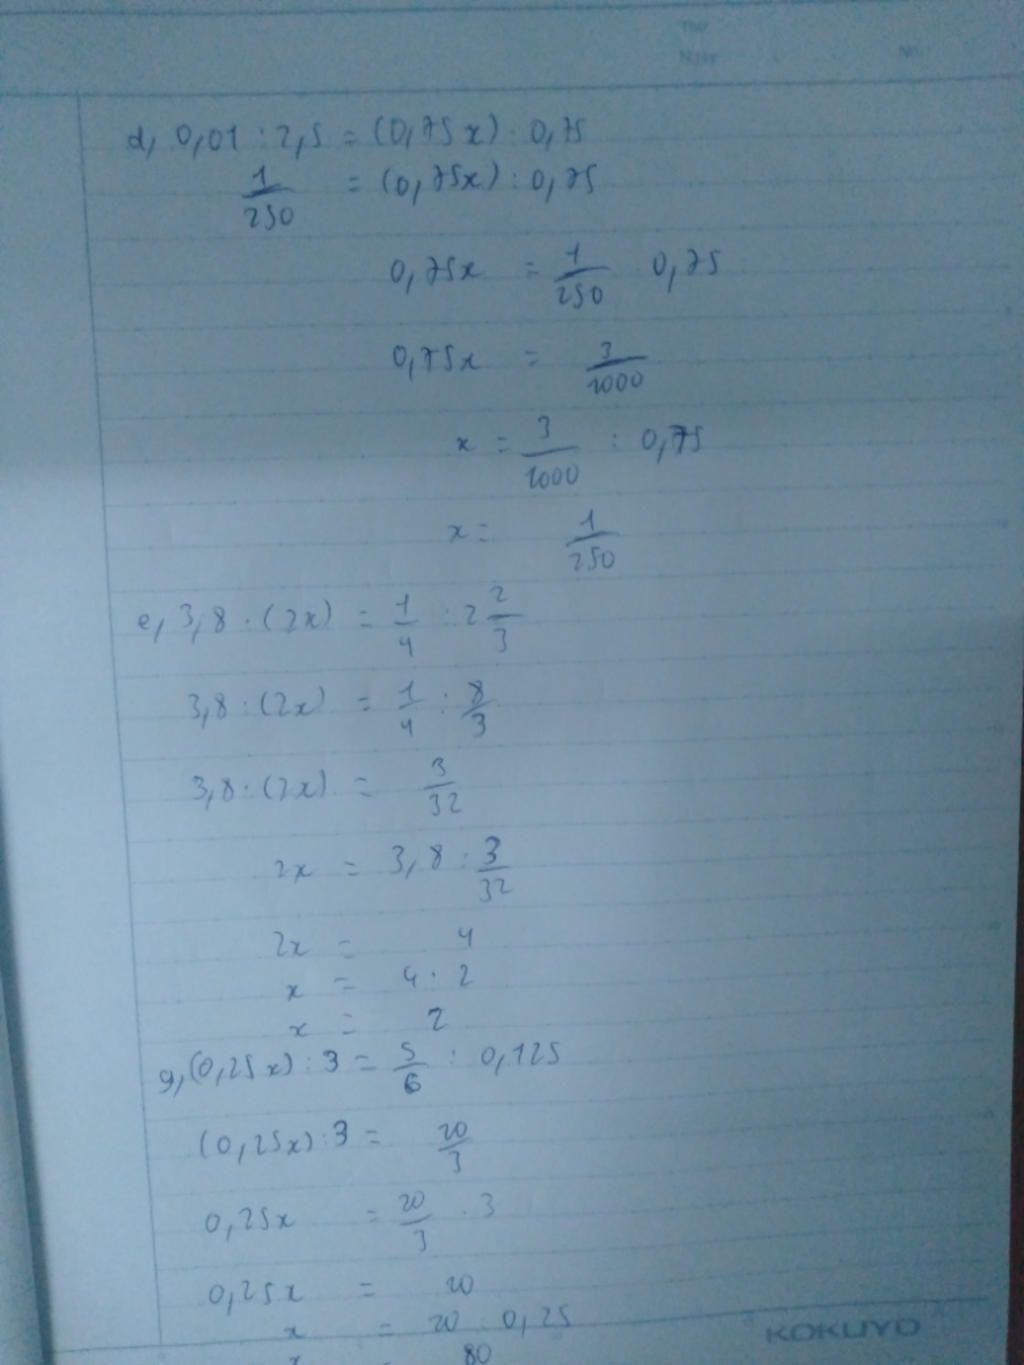 Thứ
Ngày
No.
d, 0,01 : 2,5 = (0,75x) : 0,75
1/250 = (0,75x) : 0,75
0,75x = 1/250 · 0,75
0,75x = 3/1000
x = 3/1000 : 0,75
x = 1/250
e, 3,8 : (2x) = 1/4 : 2 2/3
3,8 : (2x) = 1/4 : 8/3
3,8 : (2x) = 3/32
2x = 3,8 : 3/32
2x = 4
x = 4 : 2
x = 2
g, (0,25x) : 3 = 5/6 : 0,125
(0,25x) : 3 = 20/3
0,25x = 20/3 · 3
0,25x = 20
x = 20 : 0,25
x = 80
KOKUYO